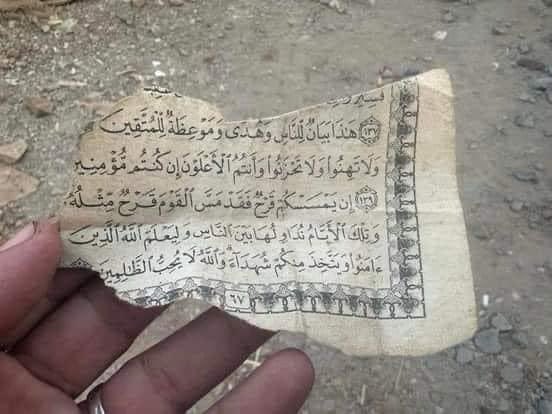 ١٣٧ هَٰذَا بَيَانٌ لِّلنَّاسِ وَهُدًى وَمَوْعِظَةٌ لِّلْمُتَّقِينَ
وَلَا تَهِنُوا۟ وَلَا تَحْزَنُوا۟ وَأَنتُمُ ٱلْأَعْلَوْنَ إِن كُنتُم مُّؤْمِنِينَ
١٣٩ إِن يَمْسَسْكُمْ قَرْحٌ فَقَدْ مَسَّ ٱلْقَوْمَ قَرْحٌ مِّثْلُهُۥ
وَتِلْكَ ٱلْأَيَّامُ نُدَاوِلُهَا بَيْنَ ٱلنَّاسِ وَلِيَعْلَمَ ٱللَّهُ ٱلَّذِينَ
ءَامَنُوا۟ وَيَتَّخِذَ مِنكُمْ شُهَدَآءَ ۗ وَٱللَّهُ لَا يُحِبُّ ٱلظَّٰلِمِينَ
٦٧